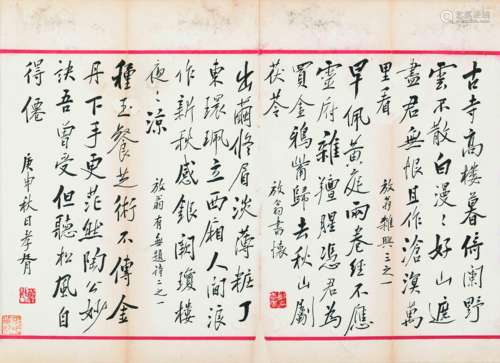 古寺高樓暮倚闌野
雲不散白漫〻好山遮
盡君無恨且作滄溟萬
里看 放翁雜興三之一
早佩黃庭兩卷經不應
靈府雜羶腥憑君為
買金鴉觜歸去秋山劚
茯苓 放翁書懷
出繭修眉淡薄粧丁
東環珮立西廂人間浪
作新秋感銀闕瓊樓
夜〻涼 放翁有無題詩二之一
種玉餐芝術不傳金
丹下手更茫然陶公妙
訣吾曾受但聽松風自
得僊 庚申秋日孝胥